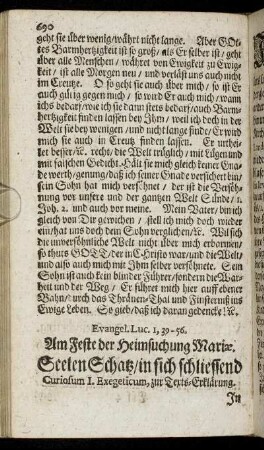 690
geht sie über wenig/währt nicht lange. Aber GOt-
tes Barmhertzigkeit ist so groß/als Er selber ist/geht
über alle Menschen/währet von Ewigkeit zu Ewig-
keit/ist alle Morgen neu/und verläst uns auch nicht
im Creutze. O so geht sie auch über mich/so ist Er
auch gütig gegen mich/so wird Er auch mich/wann
ichs bedarf/wie ich sie dann stets bedarf/auch Barm-
hertzigkeit finden lassen bey Ihm/weil ich doch in der
Welt sie bey wenigen/und nicht lange finde/Er wird
mich sie auch in Creutz finden lassen. Er urthei-
let besser/&c. recht/die Welt trüglich/mit Lügen und
mit falschen Gedicht. Hält sie mich gleich keiner Gna-
de werth/genung/daß ich seiner Gnade versichert bin/
sein Sohn hat mich versöhnet/der ist die Versöh-
nung vor unsere und der gantzen Welt Sünde/1.
Joh. 2. und auch vor meine. Mein Vater/bin ich
gleich von Dir gewichen/stell ich mich doch wieder
ein/hat uns doch dein Sohn verglichen/&c. Wil sich
die unversöhnliche Welt nicht über mich erbarmen/
so thuts GOTT/der in Christo war/und die Welt/
und also auch mich mit Ihm selber versöhnete. Sein
Sohn ist auch kein blinder Führer/sondern die War-
heit und der Weg/Er führet mich hier auff ebener
Bahn/durch das Thränen-Thal und Finsternuß ins
Ewige Leben. So gieb/daß ich daran gedencke! &c.
Evangel. Luc. 1, 39-56.
Am Feste der Heimsuchung Mariæ.
Seelen Schatz/in sich schliessend
Curiosum I. Exegeticum, zur Texts-Erklärung.
In